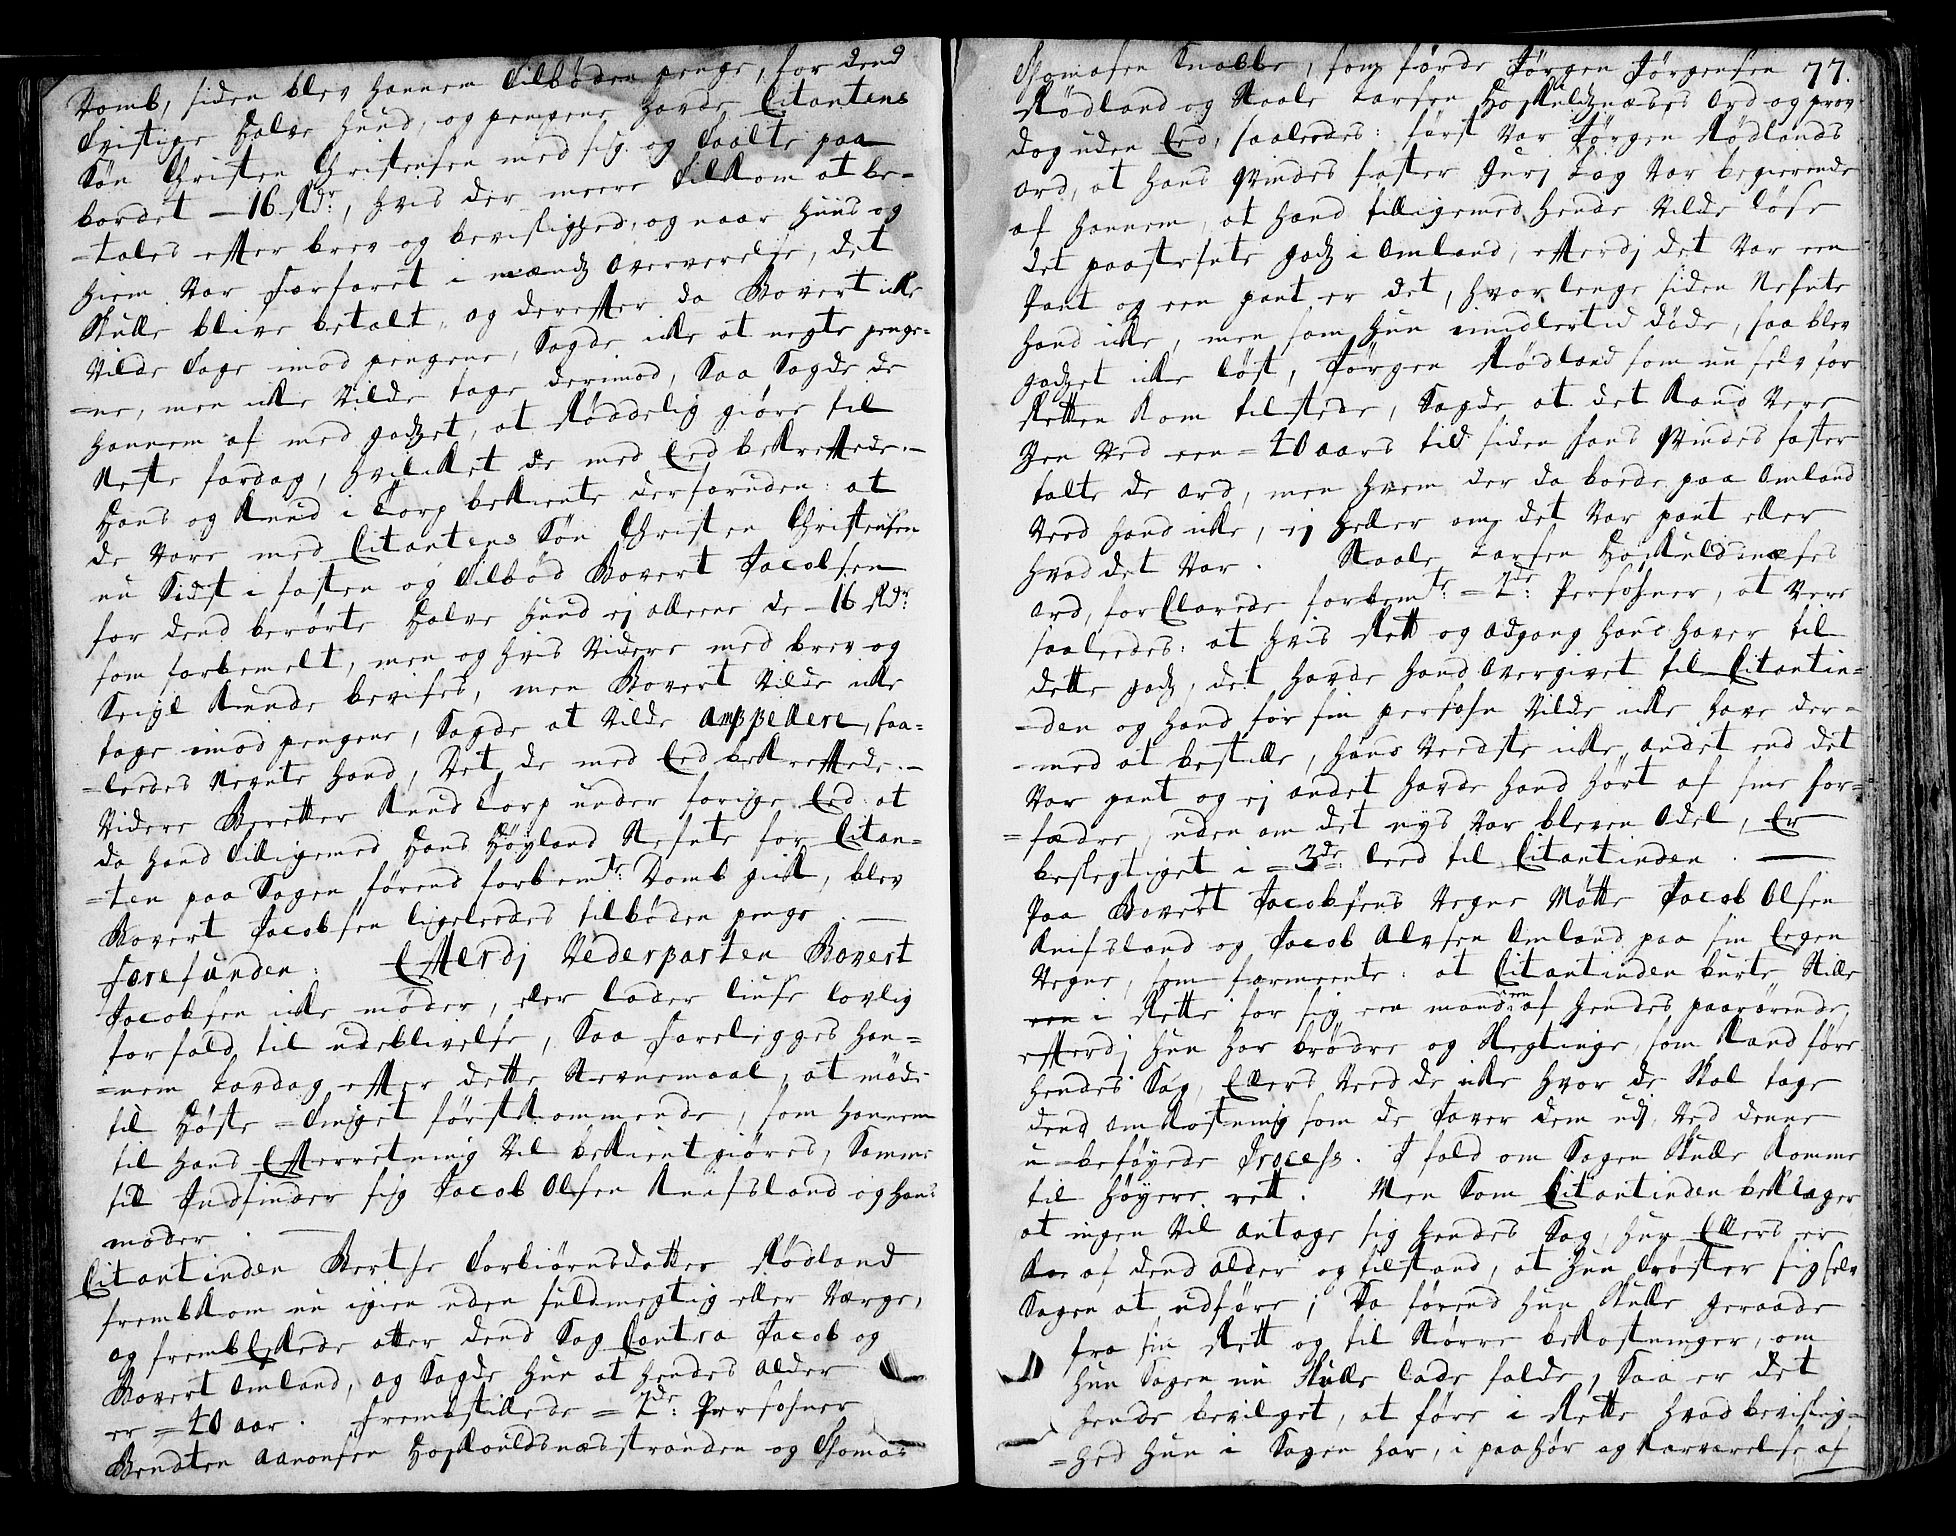 Domb, siden blev hannem tilböden penge, for dend
tvistige halve hund, og pengene havde Citantens
Sön Christen Christensen med sig og taalte paa
bordet – 16 Rdr, hvis der meere tilkom at be-
=tales efter brev og bevislighed, og naar huus og
hiem var forfaret i mændz Oververelse, det
Skulle blive betalt, og derefter da Bovert icke
vilde tage imod pengene, Sagde icke at negte penge-
=ne, men icke vilde tage derimod, Saa Sagde de
hannem af med godzet, at Röddelig giöre til
Neste fardag, hvilcket de med Eed bekreftede. –
Hans og Knud i Torp bekiente derforuden: at
de vare med Citantens Sön Christen Christensen
nu Sidst i fasten og tilböd Bovert Jacobsen
for dend berörte halve hund ej allene de – 16 Rdr:
som forbemelt, men og hvis videre med brev og
Seigl kunde bevises, men Bovert vilde icke
tage imod pengene, Sagde at vilde Appellere, saa-
=leedes Nevnte hand, Det de med Eed bekreftede. –
Videre Beretter Knud Torp under forige Eed: at
da hand tilligemed Hans Höyland Stefnte for Citan-
=ten paa Sagen förend forbemte: Domb gick, blev
Bovert Jacobsen ligeleedes tilböden penge. –
Forefunden: Efterdj Vederparten Bovert
Jacobsen icke möder, eller lader liuse lovlig
forfald til udeblivelse, Saa foreligges han-
=nem Lavdag efter dette Stevnemaal, at möde
til Höste-Tinget förstkommende, som hannem
til hans Efterretning vil bekientgiöres, Samme
till Indfinder sig Jacob Olsen Knifsland og hans
moder.
Citantinden Berthe Torbiörnsdatter Rödland
frembkom nu igien uden fuldmegtig eller Verge,
og frembEskede atter dend Sag Contra Jacob og
Bovert Omland, og Sagde hun at hendes alder
er = 40 aar. frembstillede = 2de: Persohner
Bendten Aanonsen Hoskouldsnæsstranden og Thomas
Thomasen Knabbe, som förde Jörgen Jörgensen 77.
Rödland og Staale Larsen Hoskuldznæses Ord og prov
dog uden Eed, saaledes: först var Jörgen Rödlands
ord, at hans Qvindes faster Gurj Log var begierende
af hannem, at hand tilligemed hende vilde löse
det paastefnte godz i Omland, efterdj det var een
Pant og een pant er det, hvorlenge siden Nefnte
hand icke, men som hun imidlertid döde, saa blev
godzet icke löst, Jörgen Rödland som nu selv for
Retten kom tilstede, Sagde at det kand vere
hen ved een = 40 aars tid siden hans Qvindes faster
talte de ord, men hvem der da boede paa Omland
veed hand icke, ej heller om det var pant eller
hvad det var. Staale Larsen Hoskuldsnæses
ord, forClarede forbemte: = 2de: Persohner, at vere
saaleedes: at hvis Rett og adgang hand haver til
dette godz, det havde hand overgivet til Citantin-
=den og hand for sin persohn vilde icke have der-
=med at bestille, hand veedste icke andet end det
var pant og ej andet havde hand hört af sine for-
=fædre, uden om det nys var bleven Odel, Er
beslegtiget i = 3de leed til Citantinden. –
Paa Bovert Jacobsens vegne Mötte Jacob Olsen
Knifsland og Jacob Alvsen Omland paa sin Egen
vegne, som formeente: at Citantinden burte Stille
een i Rette for sig een mand een af hendes paarörende,
efterdj hun har brödre og Slegtinge, som kand före
hendes Sag, Ellers veed de icke hvor de Skal tage
dend omkostning som de tager dem udj, ved denne
u-beföyede Process. I fald om Sagen Skulle komme
til höyere rett. Men som Citantinden beklager
at ingen vil antage sig hendes Sag, hun Ellers er
af dend alder og tilstand, at hun tröster sig selv
Sagen at udföre; Da förend hun Skulle geraade
fra sin Rett og til Större bekostninger, om
hun Sagen nu Skulle lade falde, Saa er det
hende bevilget, at före i Rette hvad bevislig-
=hed hun i Sagen har, i paahör og nærværelse af